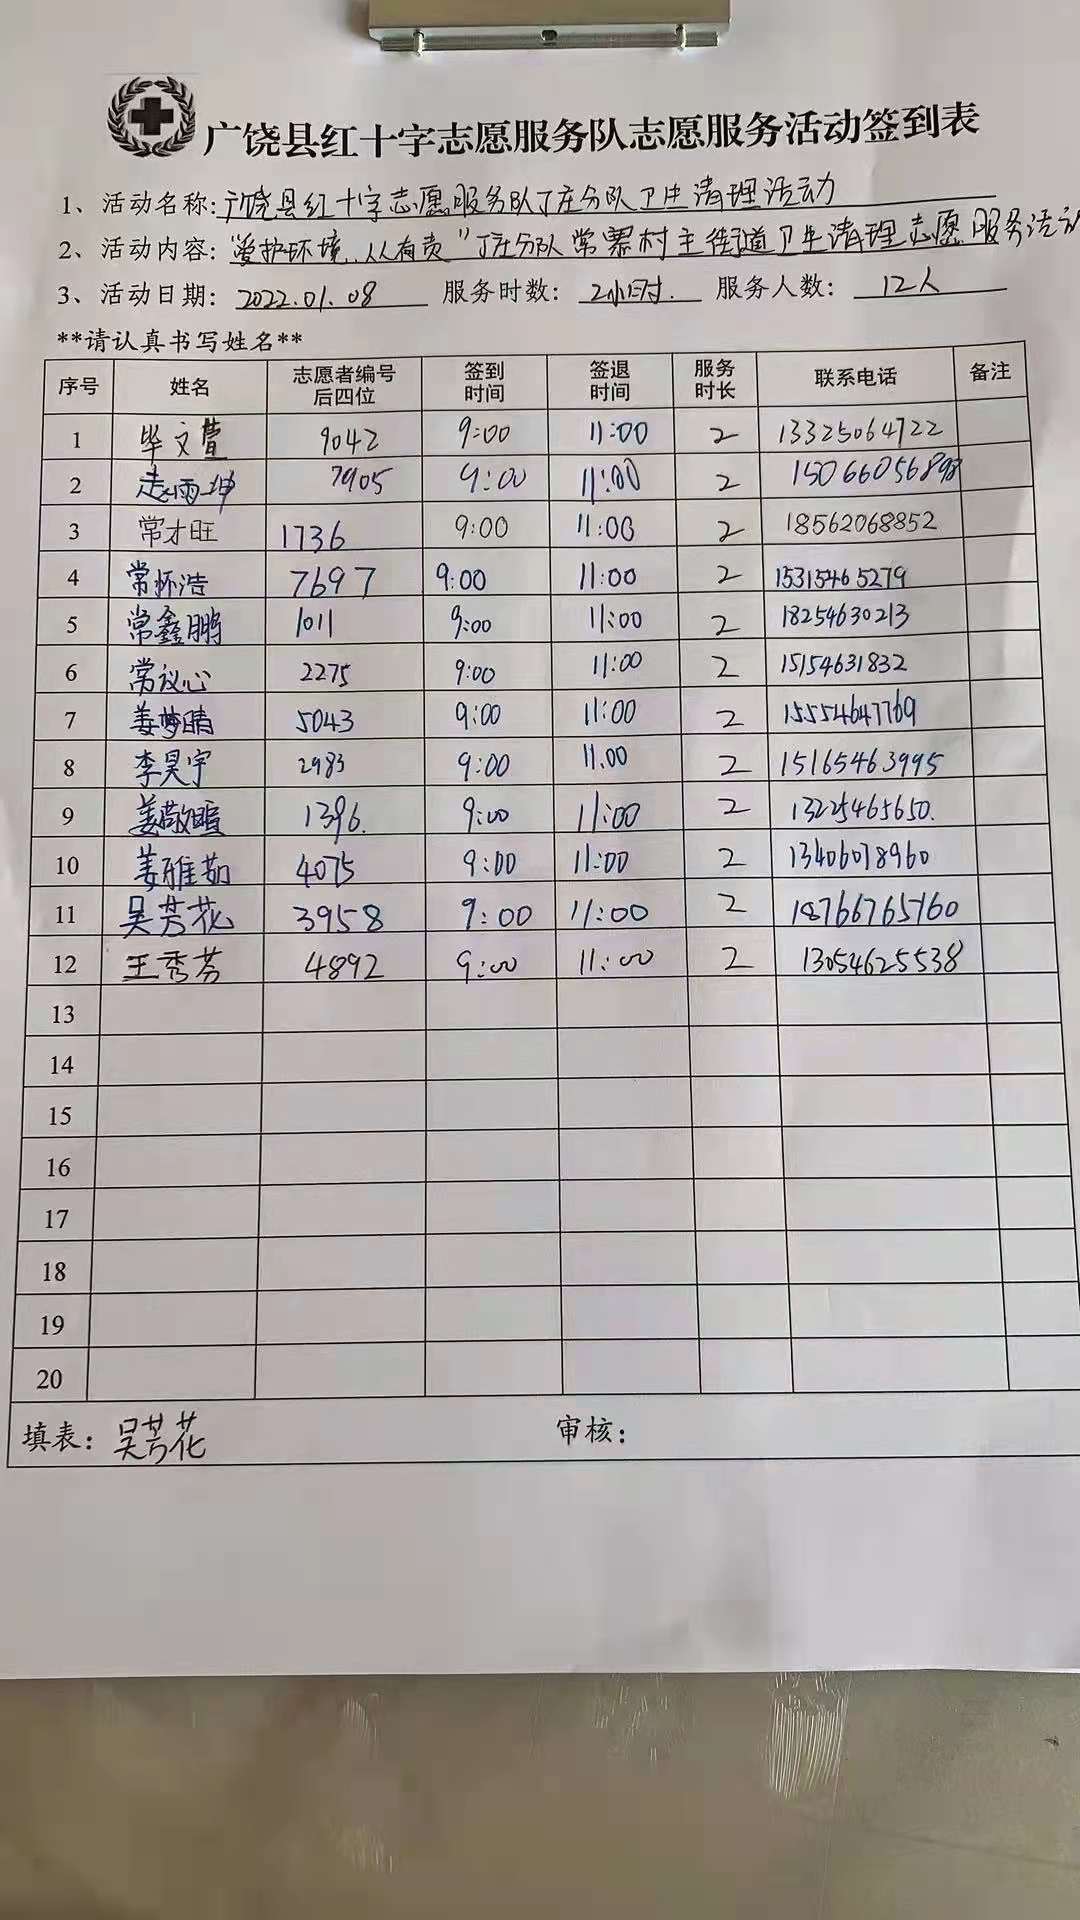 广饶县红十字志愿服务队志愿服务活动签到表
1、活动名称:广饶县红十字志愿服务队丁庄分队卫生清理活动
2、活动内容:"爱护环境、人人有责"丁庄分队常寨村主街道卫生清理志愿服务活动
3、活动日期: 2022.01.08 服务时数: 2小时. 服务人数: 12人
**请认真书写姓名**
序号 姓名 志愿者编号后四位 签到时间 签退时间 服务时长 联系电话 备注
1 毕文萱 9042 9:00 11:00 2 13325064722
2 7905 9:00 11:00 2
3 常才旺 1736 9:00 11:00 2 18562068852
4 常怀浩 7697 9:00 11:00 2 15315465279
5 常鑫鹏 1011 9:00 11:00 2 18254630213
6 常议心 2275 9:00 11:00 2 15154631832
7 姜梦晴 5043 9:00 11:00 2 15554647769
8 李昊宇 2983 9:00 11.00 2 15165463995
9 1396. 9:00 11:00 2 13225465650.
10 姜雅茹 4075 9:00 11:00 2 13406078960
11 吴芳花 3958 9:00 11:00 2 18766765760
12 王秀芬 4892 9:00 11:00 2 13054625538
13
14
15
16
17
18
19
20
填表: 吴芳花 审核: